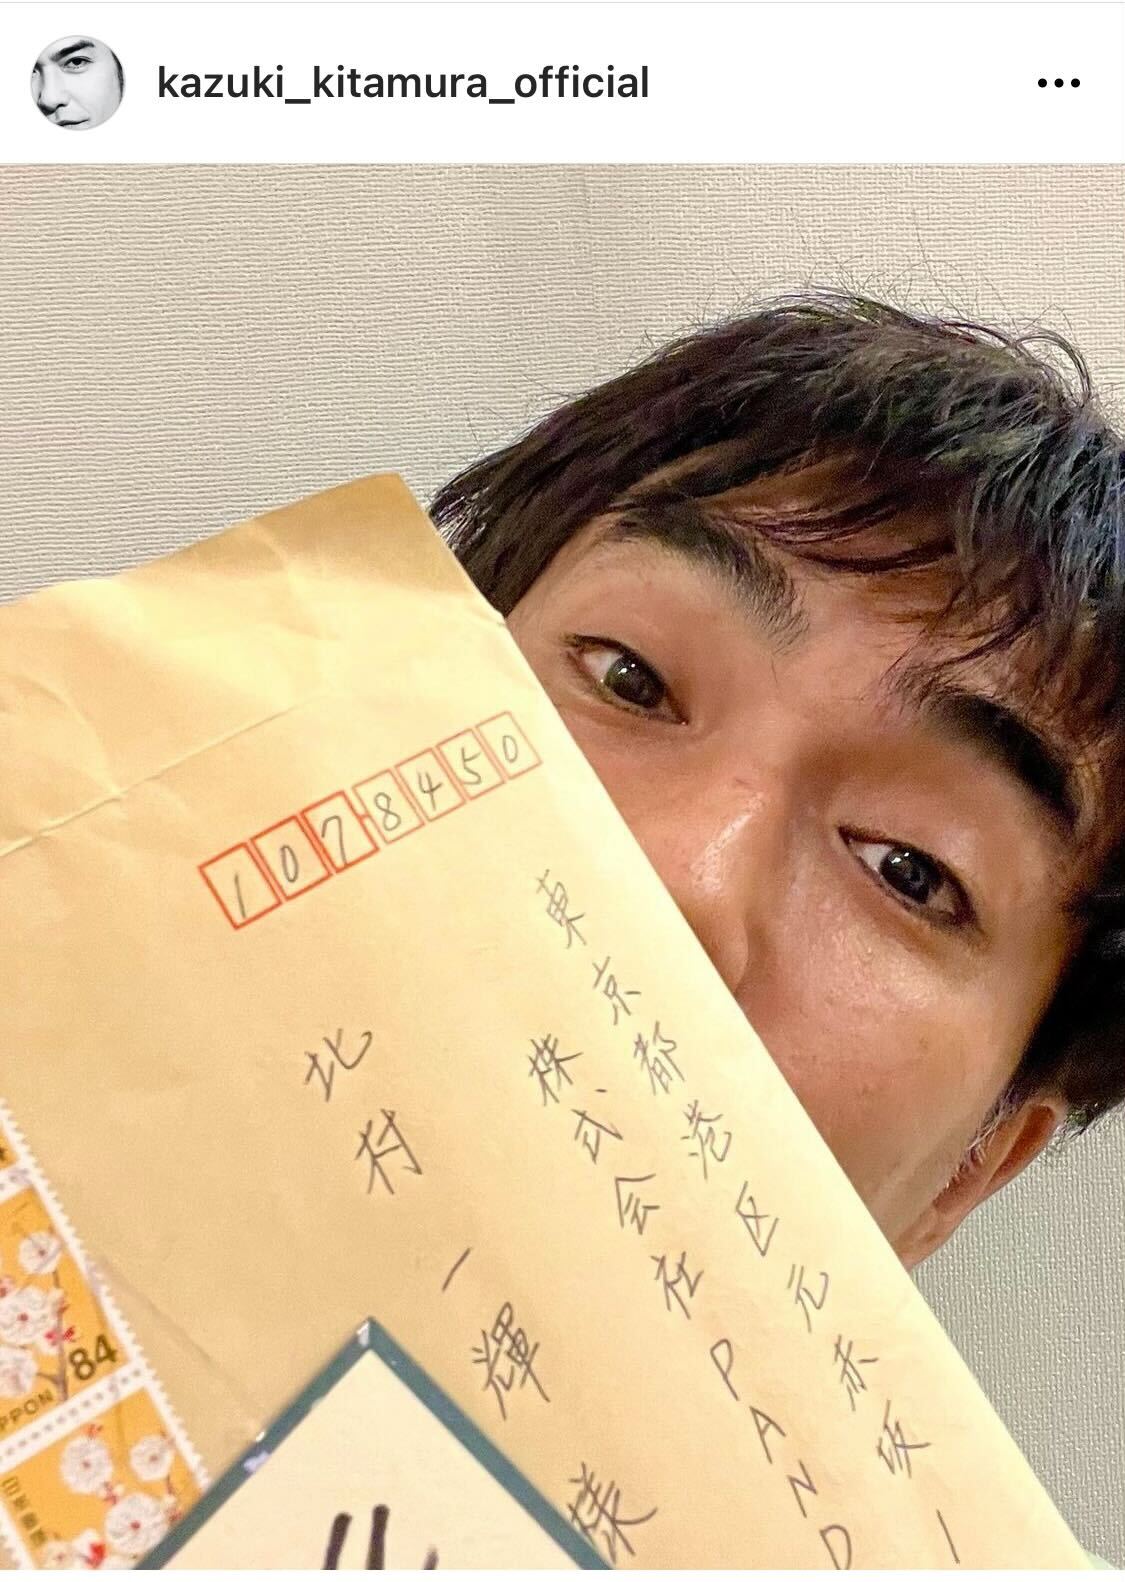 kazuki_kitamura_official
1078450
東京都港区元赤坂1
株式会社PAND
北村一輝様
84
NIPPON